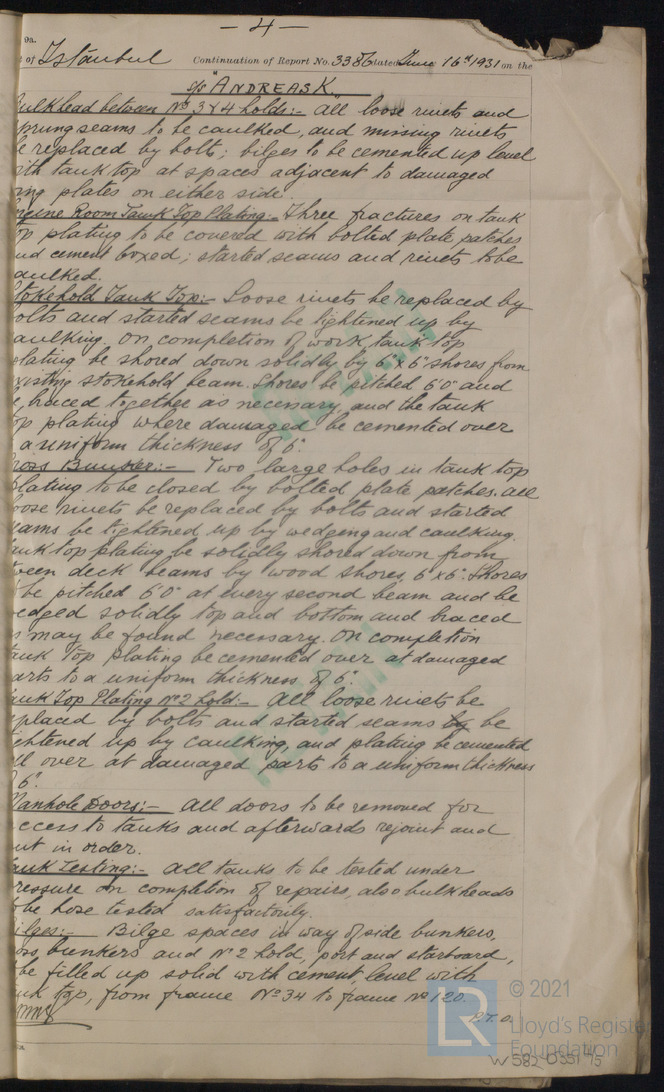 - 4 -
9a.
of Istanbul Continuation of Report No. 3386 dated June 16th 1931 on the
s/s "ANDREAS K."
ulkhead between No 3 & 4 holds:- All loose rivets and
prung seams to be caulked, and missing rivets
e replaced by bolts; bilges to be cemented up level
ith tank top at spaces adjacent to damaged
ing plates on either side.
ngine Room Tank Top Plating:- Three fractures on tank
op plating to be covered with bolted plate patches
nd cement boxed; started seams and rivets to be
aulked.
tokehold Tank Top:- Loose rivets be replaced by
olts and started seams be tightened up by
aulking. On completion of work, tank top
lating be shored down solidly by 6"x6" shores from
xisting stokehold beam. Shores be pitched 6'0" and
e braced together as necesary, and the tank
op plating where damaged be cemented over
a uniform thickness of 6".
ross Bunker:- Two large holes in tank top
lating to be closed by bolted plate patches. All
oose rivets be replaced by bolts and started
eams be tightened up by wedging and caulking.
ank top plating be solidly shored down from
ween deck beams by wood shores, 6"x6". Shores
be pitched 6'0" at every second beam and be
edged solidly top and bottom and braced
s may be found necessary. On completion
ank Top plating be cemented over at damaged
arts to a uniform thickness of 6".
ank Top Plating No 2 hold:- All loose rivets be
placed by bolts and started seams by be
ightened up by caulking, and plating be cemented
ll over at damaged parts to a uniform thickness
6".
Manhole Doors:- All doors to be removed for
ccess to tanks and afterwards rejoint and
ut in order.
ank Testing:- All tanks to be tested under
ressure on completion of repairs, also bulkheads
be hose tested satisfactorily.
ilges:- Bilge spaces in way of side bunkers,
oss, bunkers and No 2 hold, port and starboard,
be filled up solid with cement, level with
nk top, from frame No 34 to frame No 120.
P.T.O.
LR
© 2021
Lloyd's Register
Foundation
W582-0351 4/5